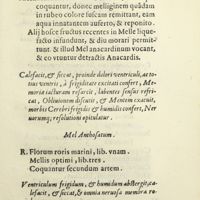 coquantur, donec melliginem quádam
in rubeo colore fuscam remittant, eam
aqua innatantem aufertò, & reponito.
Alij hosce fructus recentes in Melle lique-
facto infundunt, & diu morari permit-
tunt. & illud Mel anacardinum vocant,
& eo vtuntur detractis Anacardis.
Calefacit, & siccat, proinde dolori ventriculi, ac to-
tius ventris, à frigiditate excitati confert, Me-
moriæ iacturam resarcit, labentes sensus refri-
cat, Obliuionem discutit, & Mentem exacuit,
morbis Cerebri frigidis & humidis confert, Ner
uorumq; resolutioni opitulatur.
Mel Anthosatum.
R. Florum roris marini, lib. vnam.
Mellis optimi, lib. tres.
Coquantur secundum artem.
Ventriculum frigidum, & humidum abstergit, ca-
lefacit, & siccat, & omnia neruosa membra ro-